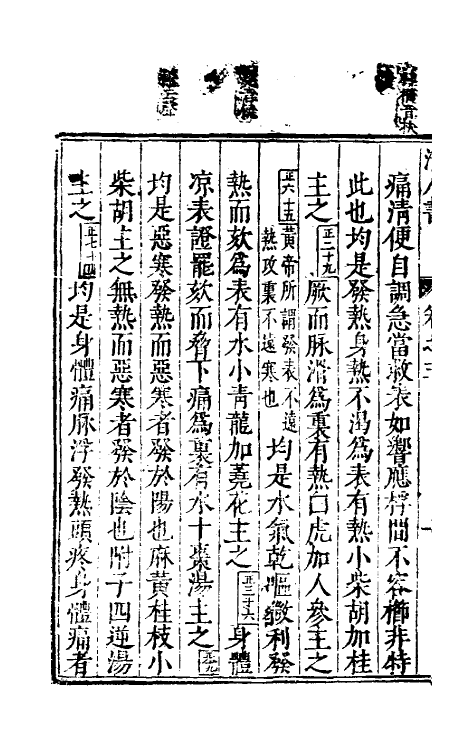 活人書 卷之三
痛清便自調急當救表如響應桴間不容櫛非特
此也均是發熱身熱不渴爲表有熱小柴胡加桂
主之正二十九厥而脉滑爲裏有熱白虎加人參主之
正六十五黃帝所謂發表不遠熱攻裏不遠寒也均是水氣乾嘔欬利發
熱而欬爲表有水小青龍加蕘花主之正三十六身體
凉表證罷欬而脅下痛爲裏有水十棗湯主之
均是惡寒發熱而惡寒者發於陽也麻黃桂枝小
柴胡主之無熱而惡寒者發於陰也附子四逆湯
主之正七十四均是身體痛脉浮發熱頭疼身體痛者